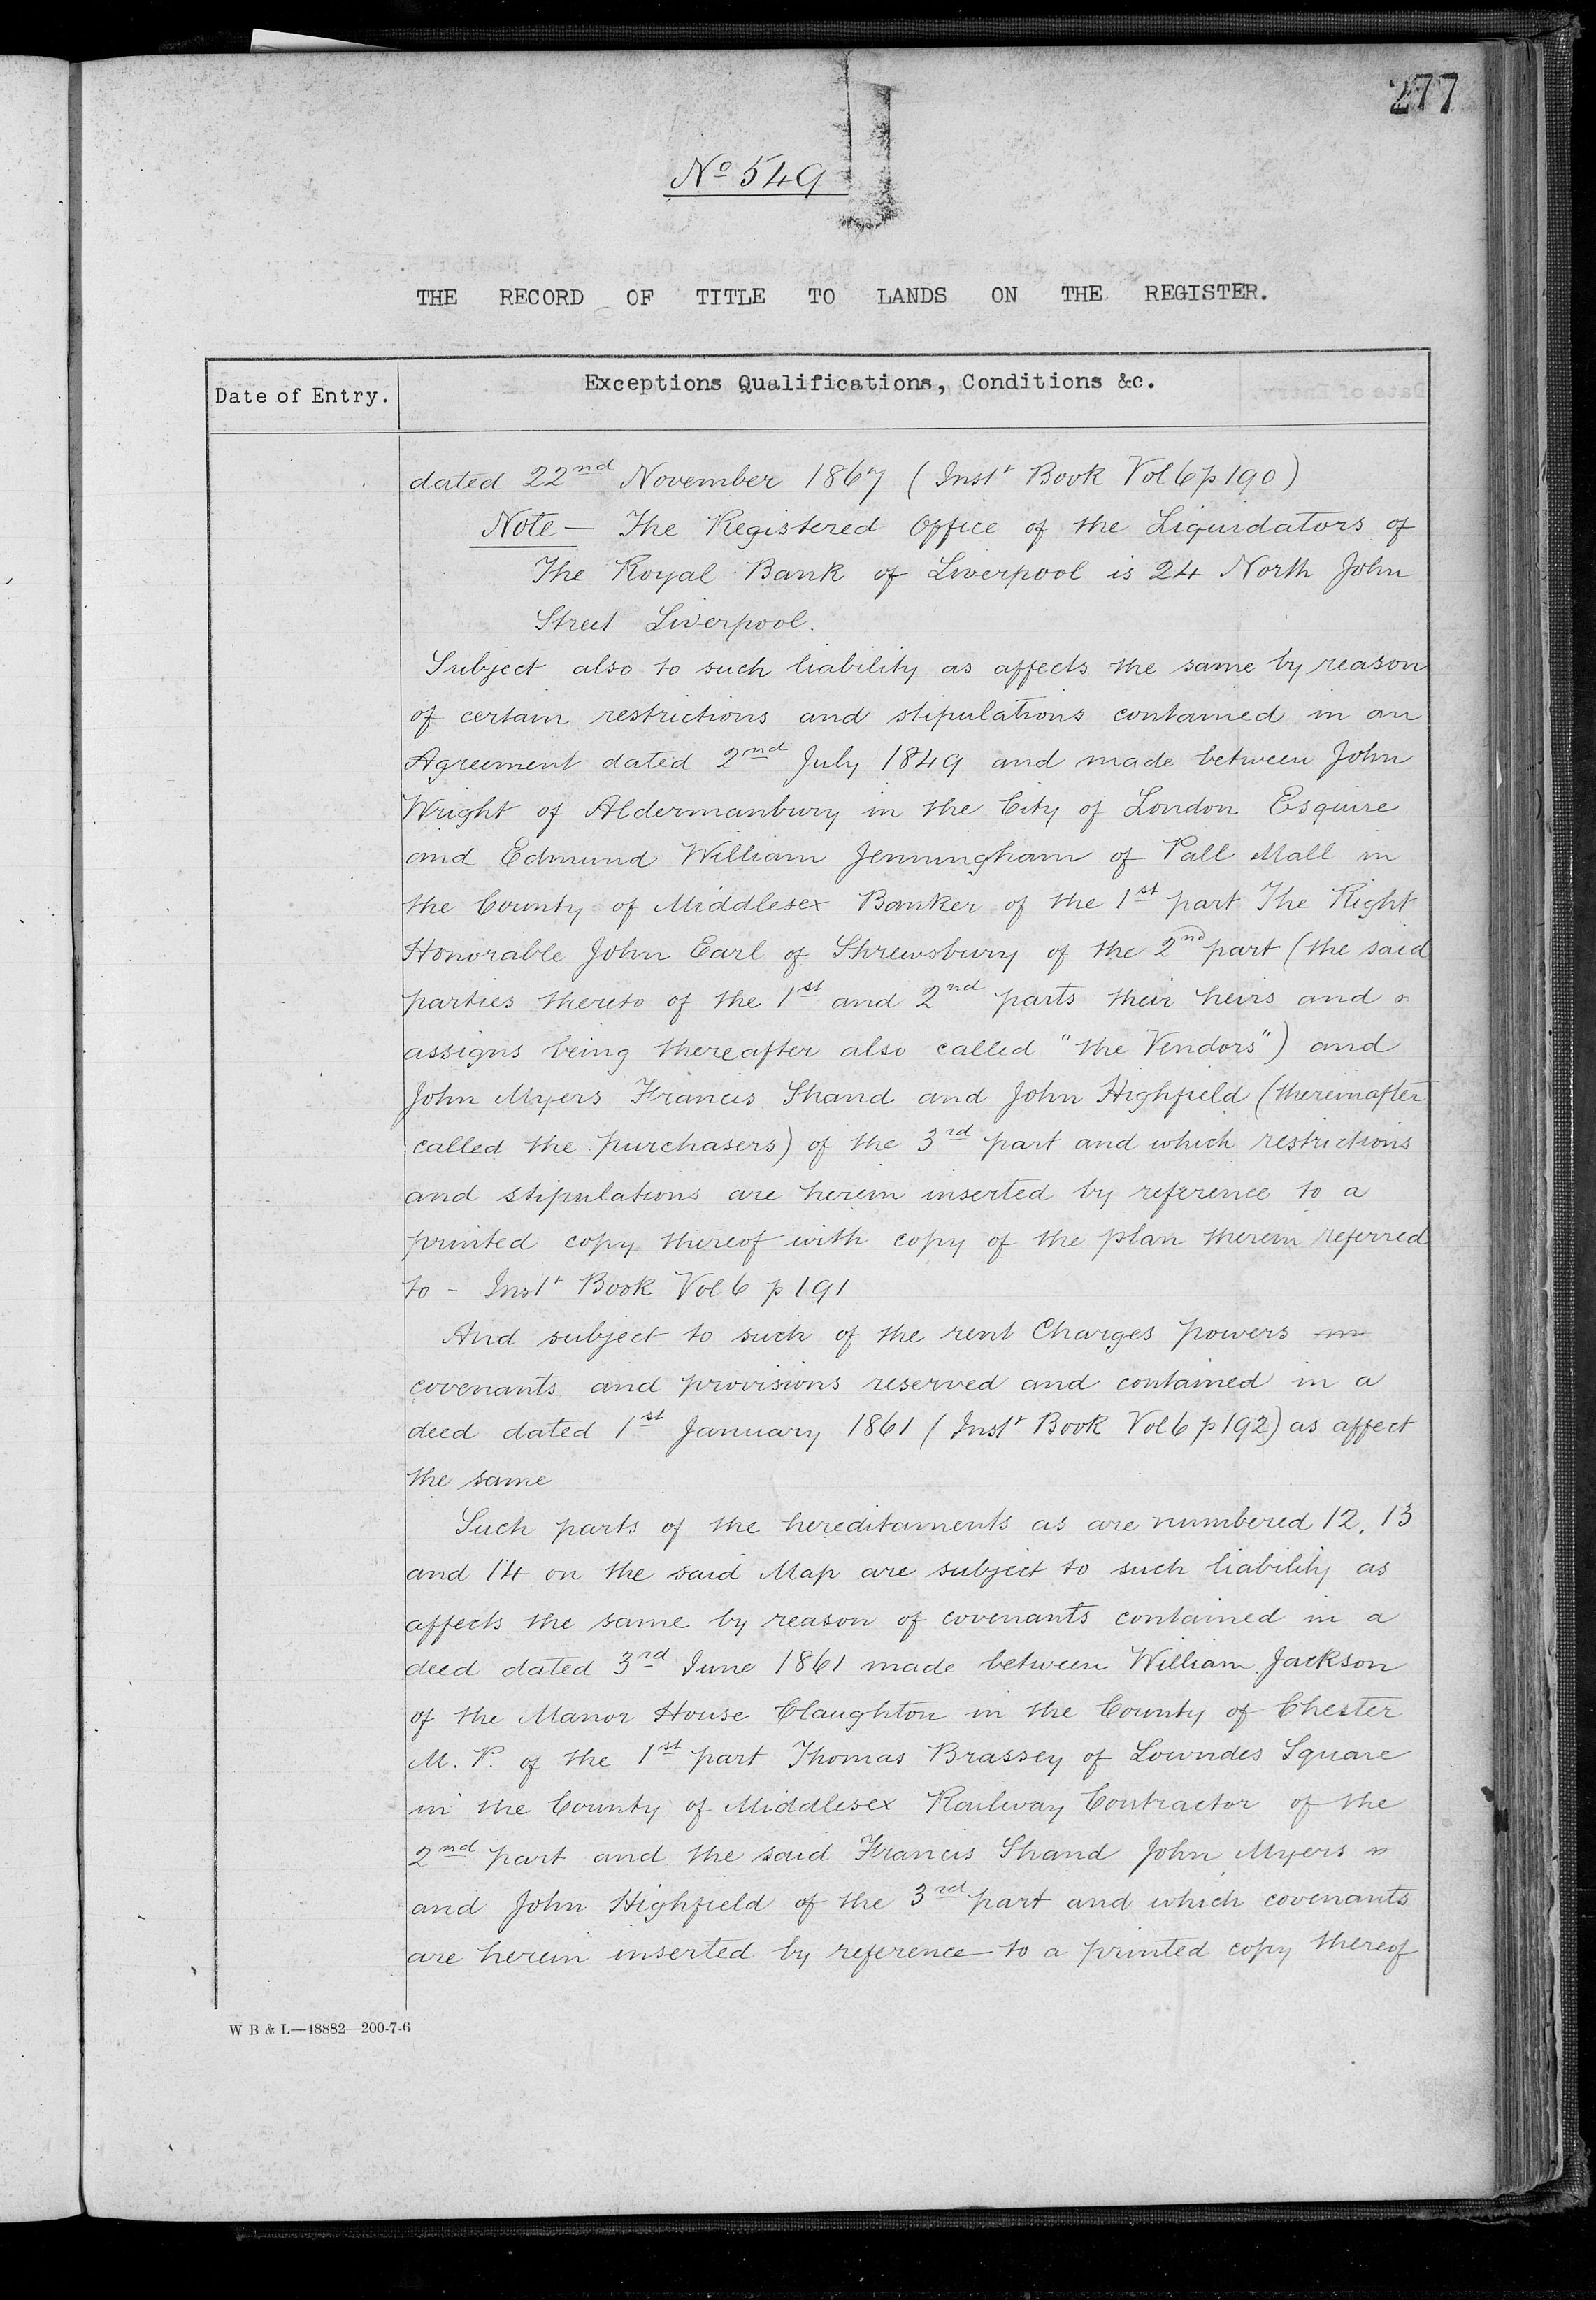 277
No 549
THE RECORD OF TITLE TO LANDS ON THE REGISTER.
Date of Entry.
Exceptions Qualifications, Conditions &c.
dated 22nd November 1867 (Inst Book Vol 6 p 190)
Note — The Registered Office of the Liquidators of
The Royal Bank of Liverpool is 24 North John
Street Liverpool.
Subject also to such liability as affects the same by reason
of certain restrictions and stipulations contained in an
Agreement dated 2nd July 1849 and made between John
Wright of Aldermanbury in the City of London Esquire
and Edmund William Jenningham of Pall Mall in
the County of Middlesex Banker of the 1st part The Right
Honorable John Earl of Shrewsbury of the 2nd part (the said
parties thereto of the 1st and 2nd parts their heirs and
assigns being thereafter also called "the Vendors") and
John Myers Francis Shand and John Highfield (thereinafter
called the purchasers) of the 3rd part and which restrictions
and stipulations are herein inserted by reference to a
printed copy thereof with copy of the plan therein referred
to - Inst Book Vol 6 p 191
And subject to such of the rent Charges powers
covenants and provisions reserved and contained in a
deed dated 1st January 1861 (Inst Book Vol 6 p 192) as affect
the same
Such parts of the hereditaments as are numbered 12, 13
and 14 on the said Map are subject to such liability as
affects the same by reason of covenants contained in a
deed dated 3rd June 1861 made between William Jackson
of the Manor House Claughton in the County of Chester
M. P. of the 1st part Thomas Brassey of Lowndes Square
in the County of Middlesex Railway Contractor of the
2nd part and the said Francis Shand John Myers
and John Highfield of the 3rd part and which covenants
are herein inserted by reference to a printed copy thereof
W B & L—48882—200-7-6